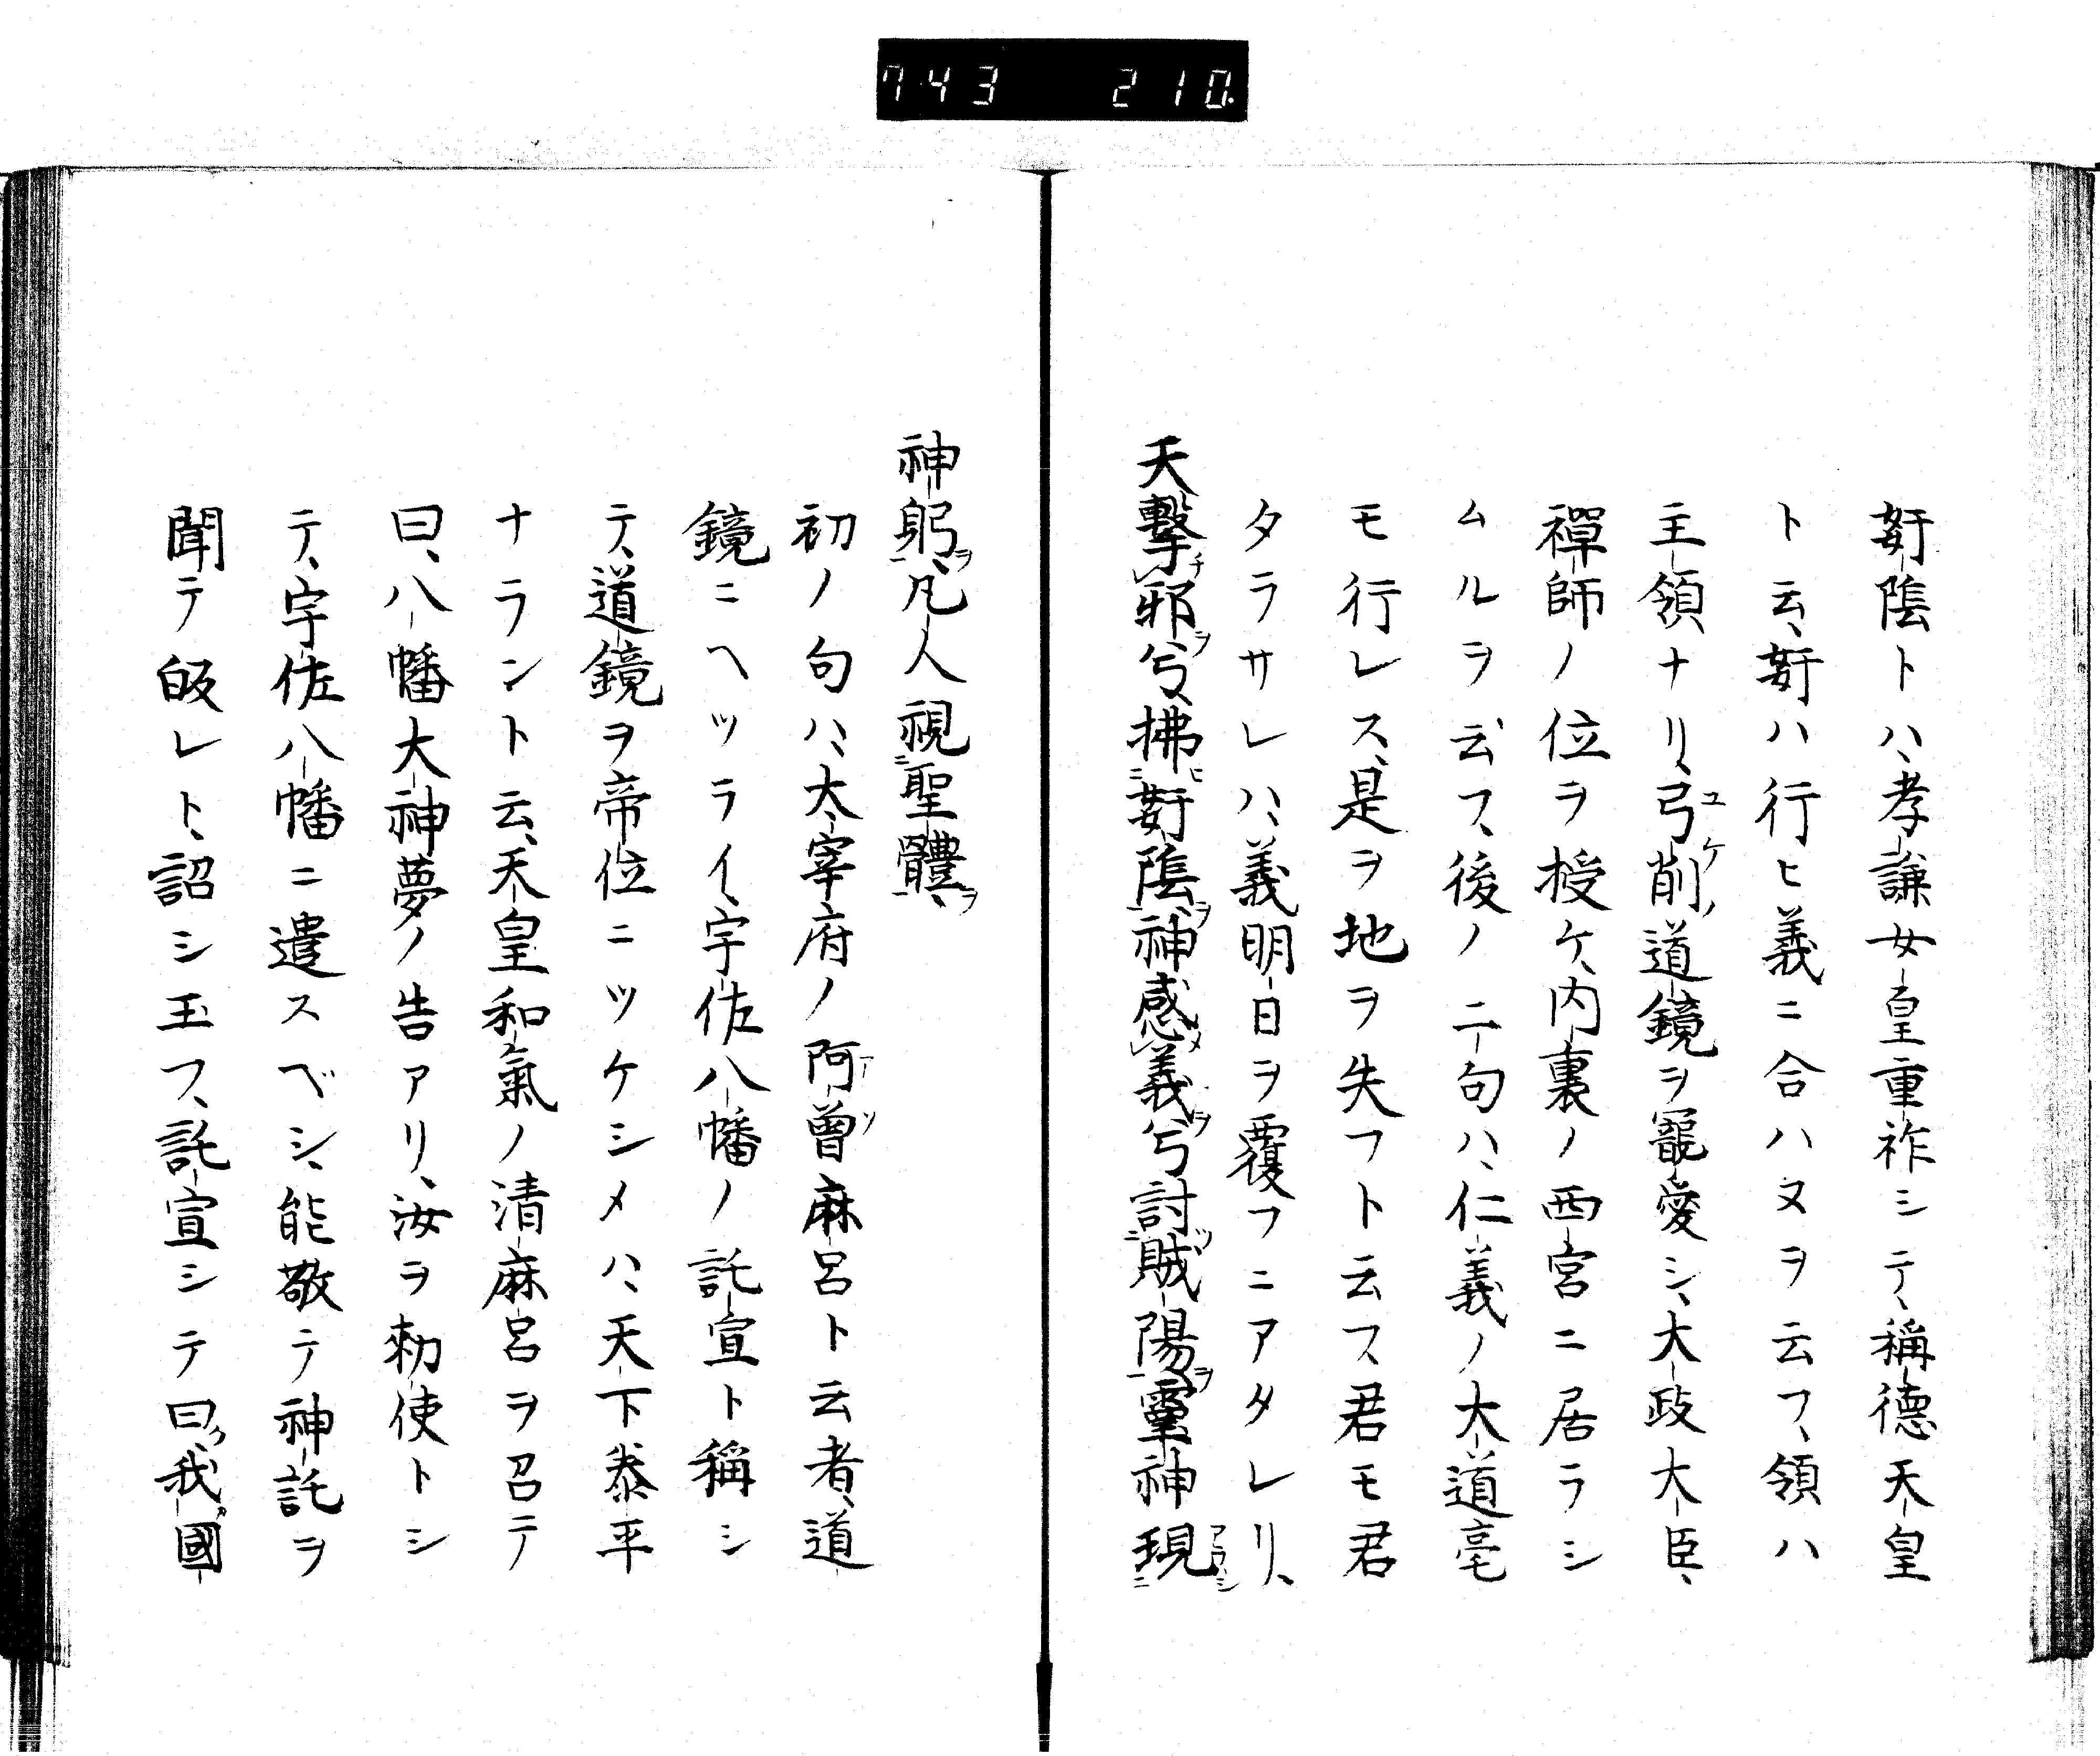 743 210.
姧陰トハ、孝謙女皇重祚シテ、稱德天皇
ト云、姧ハ行ヒ義ニ合ハヌヲ云フ、領ハ
主領ナリ、弓削道鏡ヲ寵愛シ、大政大臣、
禪師ノ位ヲ授ケ、内裏ノ西宮ニ居ラシ
ムルヲ云フ、後ノ二句ハ、仁義ノ大道毫
モ行レス、是ヲ地ヲ失フト云ス君モ君
タラサレハ、義明日ヲ覆フニアタレリ、
天擊邪兮、拂姧陰、神感義兮討賊陽靈神現
神躬、凡人視聖體、
初ノ句ハ、太宰府ノ阿曽麻呂ト云者、道
鏡ニヘツライ、宇佐八幡ノ託宣ト稱シ
テ、道鏡ヲ帝位ニツケシメハ、天下泰平
ナラント云、天皇和氣ノ清麻呂ヲ召テ
曰、八幡大神夢ノ告アリ、汝ヲ勅使トシ
テ、宇佐八幡ニ遣スベシ、能敬テ神託ヲ
聞テ皈レト、詔シ玉フ、託宣シテ曰我國